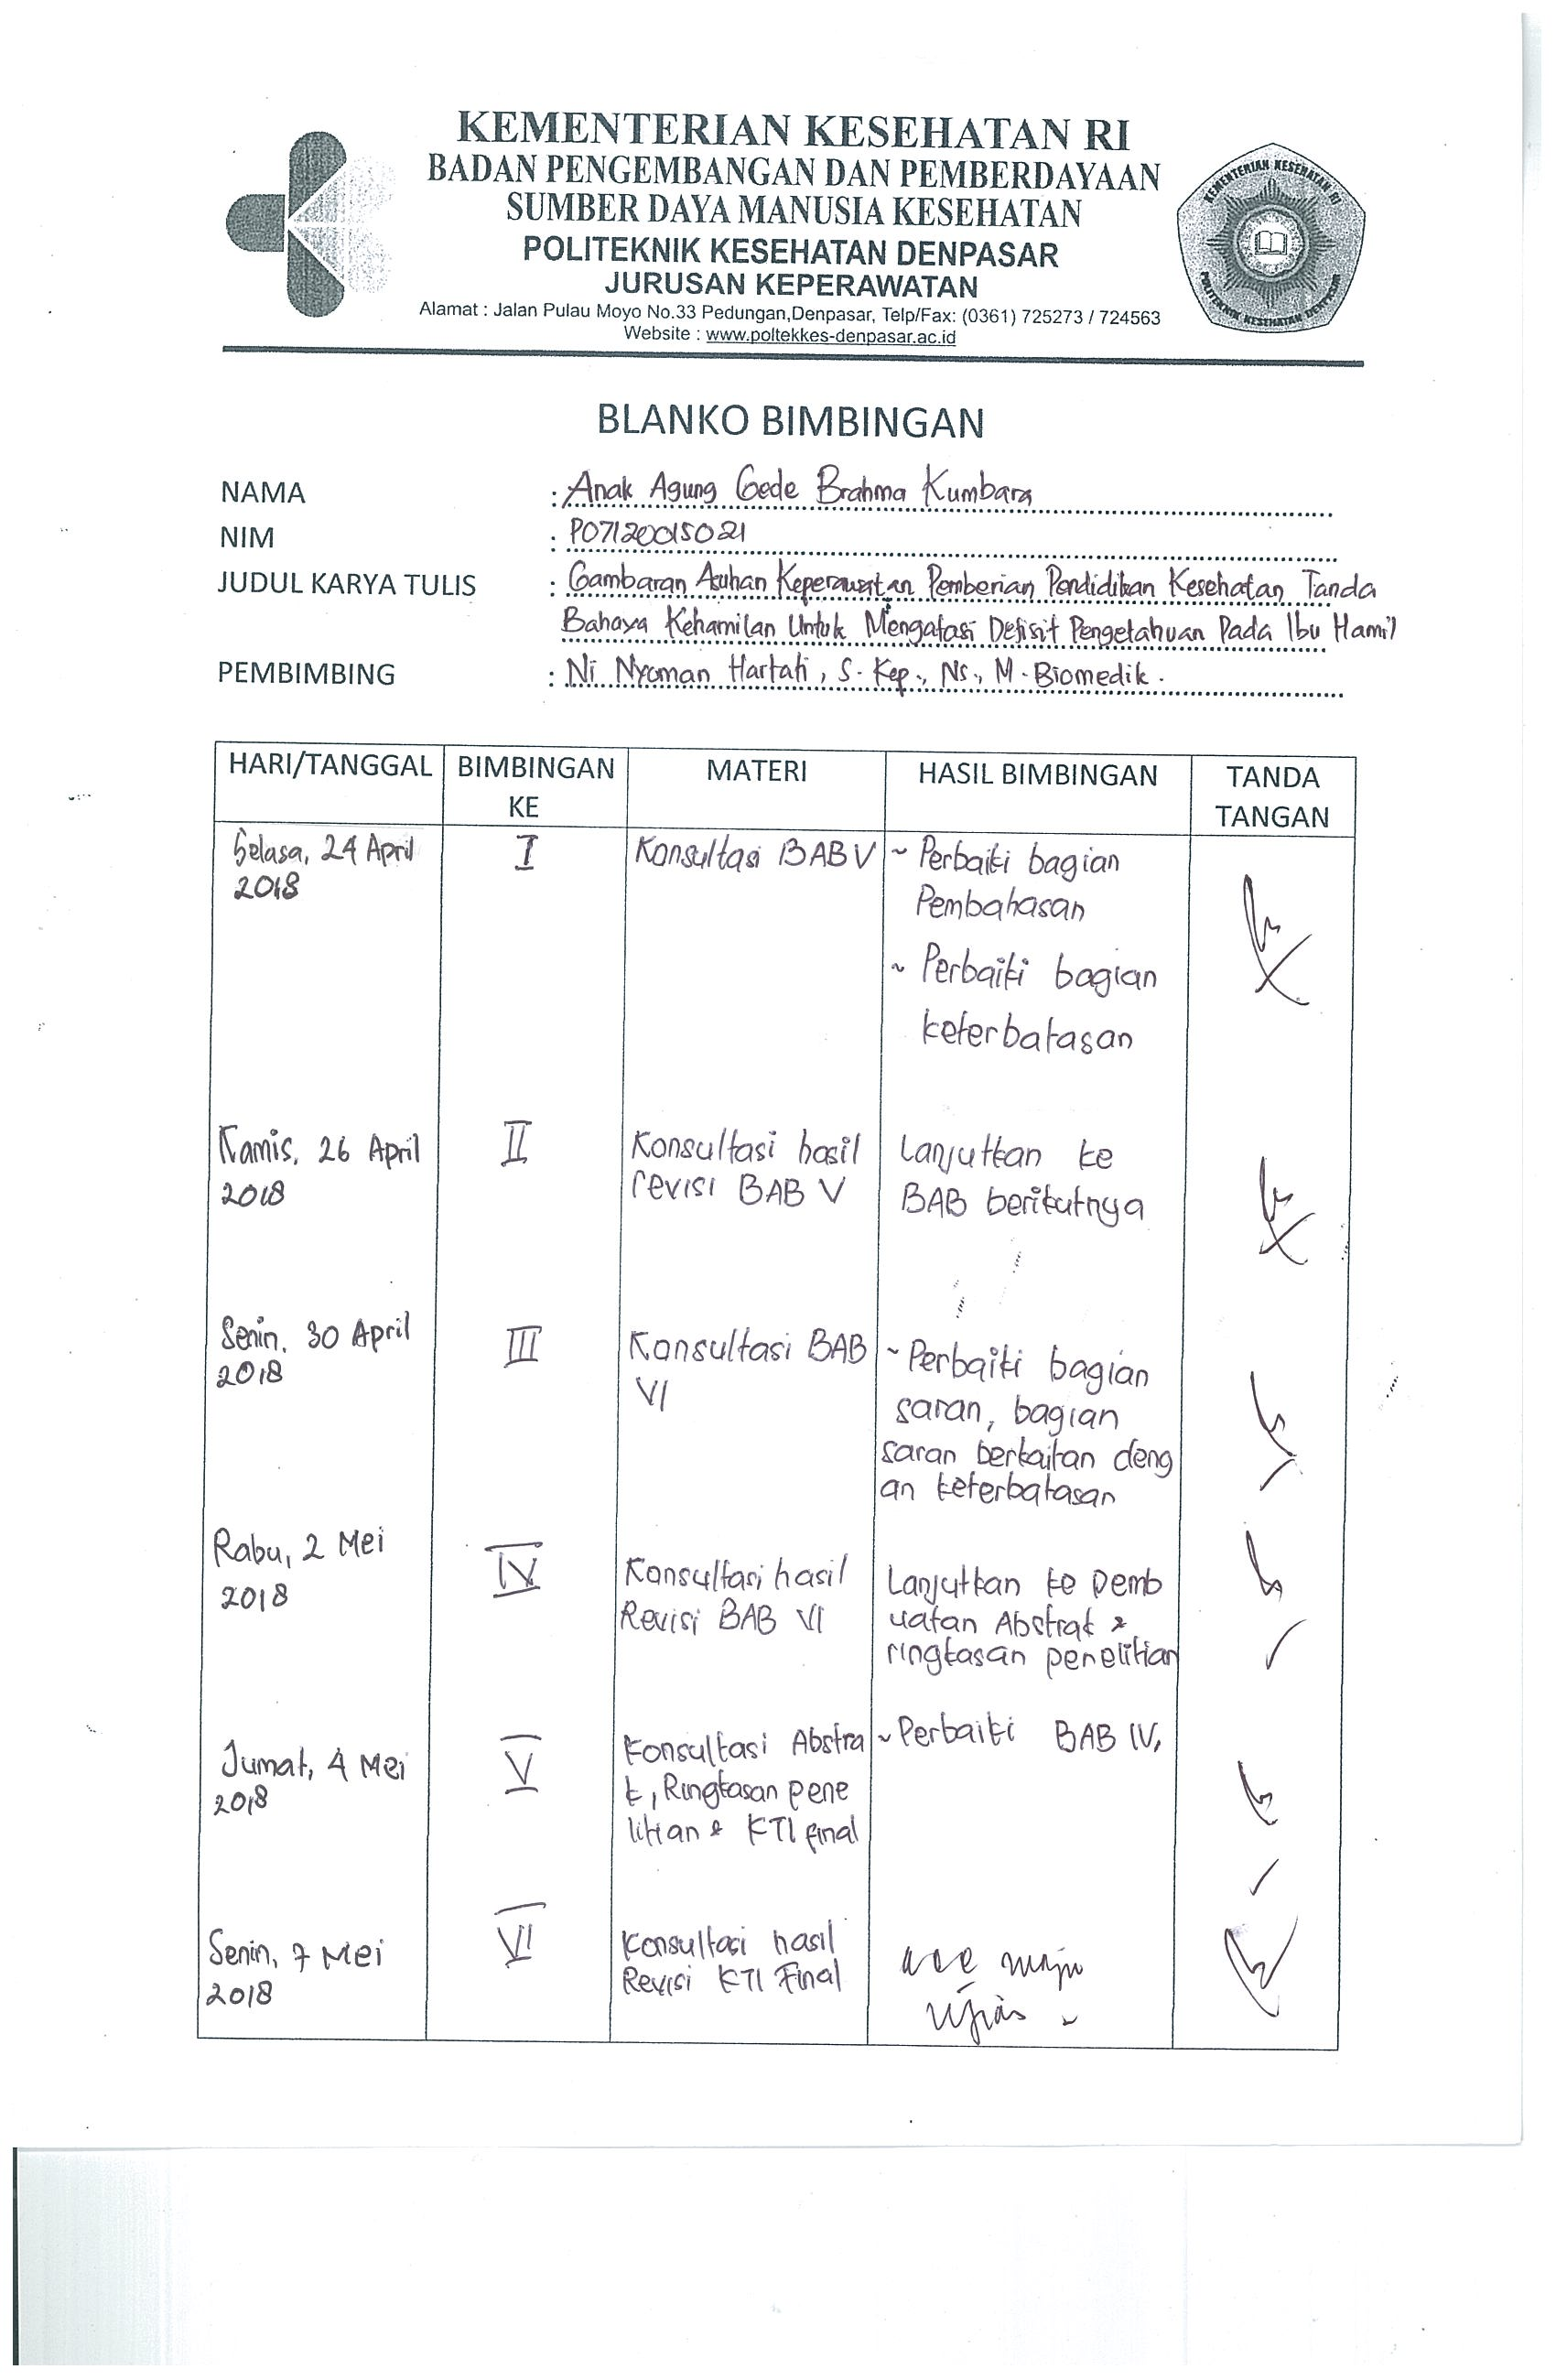 KEMENTERIAN KESEHATAN RI
BADAN PENGEMBANGAN DAN PEMBERDAYAAN
SUMBER DAYA MANUSIA KESEHATAN
POLITEKNIK KESEHATAN DENPASAR
JURUSAN KEPERAWATAN
Alamat : Jalan Pulau Moyo No.33 Pedungan,Denpasar, Telp/Fax: (0361) 725273 / 724563
Website : www.poltekkes-denpasar.ac.id
KEMENTERIAN KESEHATAN RI
POLITEKNIK KESEHATAN DENPASAR
BLANKO BIMBINGAN
NAMA : Anak Agung Gede Brahma Kumbara
NIM : P07120015021
JUDUL KARYA TULIS : Gambaran Asuhan Keperawatan Pemberian Pendidikan Kesehatan Tanda
Bahaya Kehamilan Untuk Mengatasi Defisit Pengetahuan Pada Ibu Hamil
PEMBIMBING : Ni Nyoman Hartati, S.Kep., Ns., M.Biomedik.
HARI/TANGGAL BIMBINGAN KE MATERI HASIL BIMBINGAN TANDA TANGAN
Selasa, 24 April
2018
I
Konsultasi BAB V
~ Perbaiki bagian
Pembahasan
~ Perbaiki bagian
keterbatasan
Kamis, 26 April
2018
II
Konsultasi hasil
revisi BAB V
Lanjutkan ke
BAB berikutnya
Senin, 30 April
2018
III
Konsultasi BAB
VI
~ Perbaiki bagian
saran, bagian
saran berkaitan deng
an keterbatasan
Rabu, 2 Mei
2018
IV
Konsultasi hasil
Revisi BAB VI
Lanjutkan ke pemb
uatan Abstrak &
ringkasan penelitian
Jumat, 4 Mei
2018
V
Konsultasi Abstra
k, Ringkasan pene
litian & KTI final
~ Perbaiki BAB IV,
Senin, 7 Mei
2018
VI
Konsultasi hasil
Revisi KTI Final
acc maju
ujian